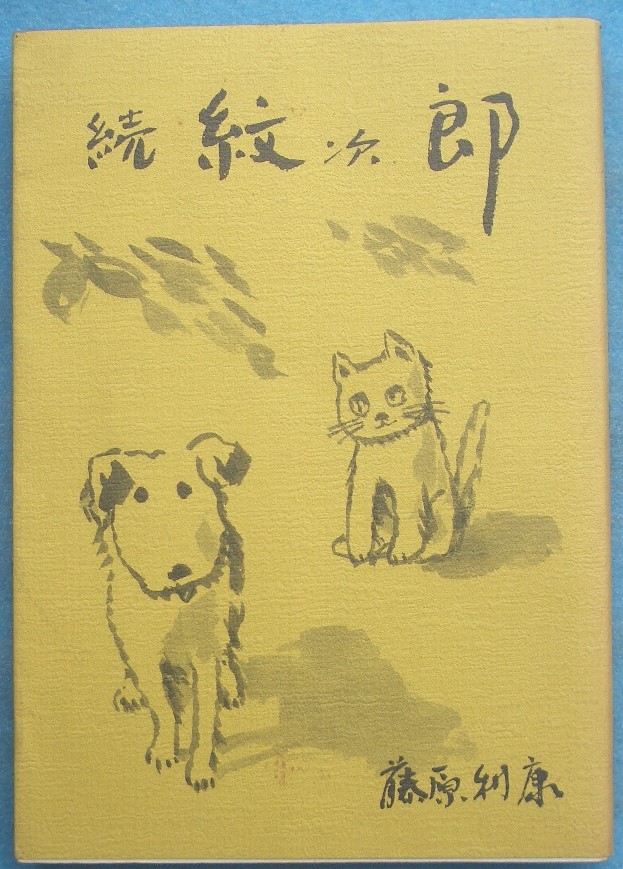 続 紋次郎
藤原利康